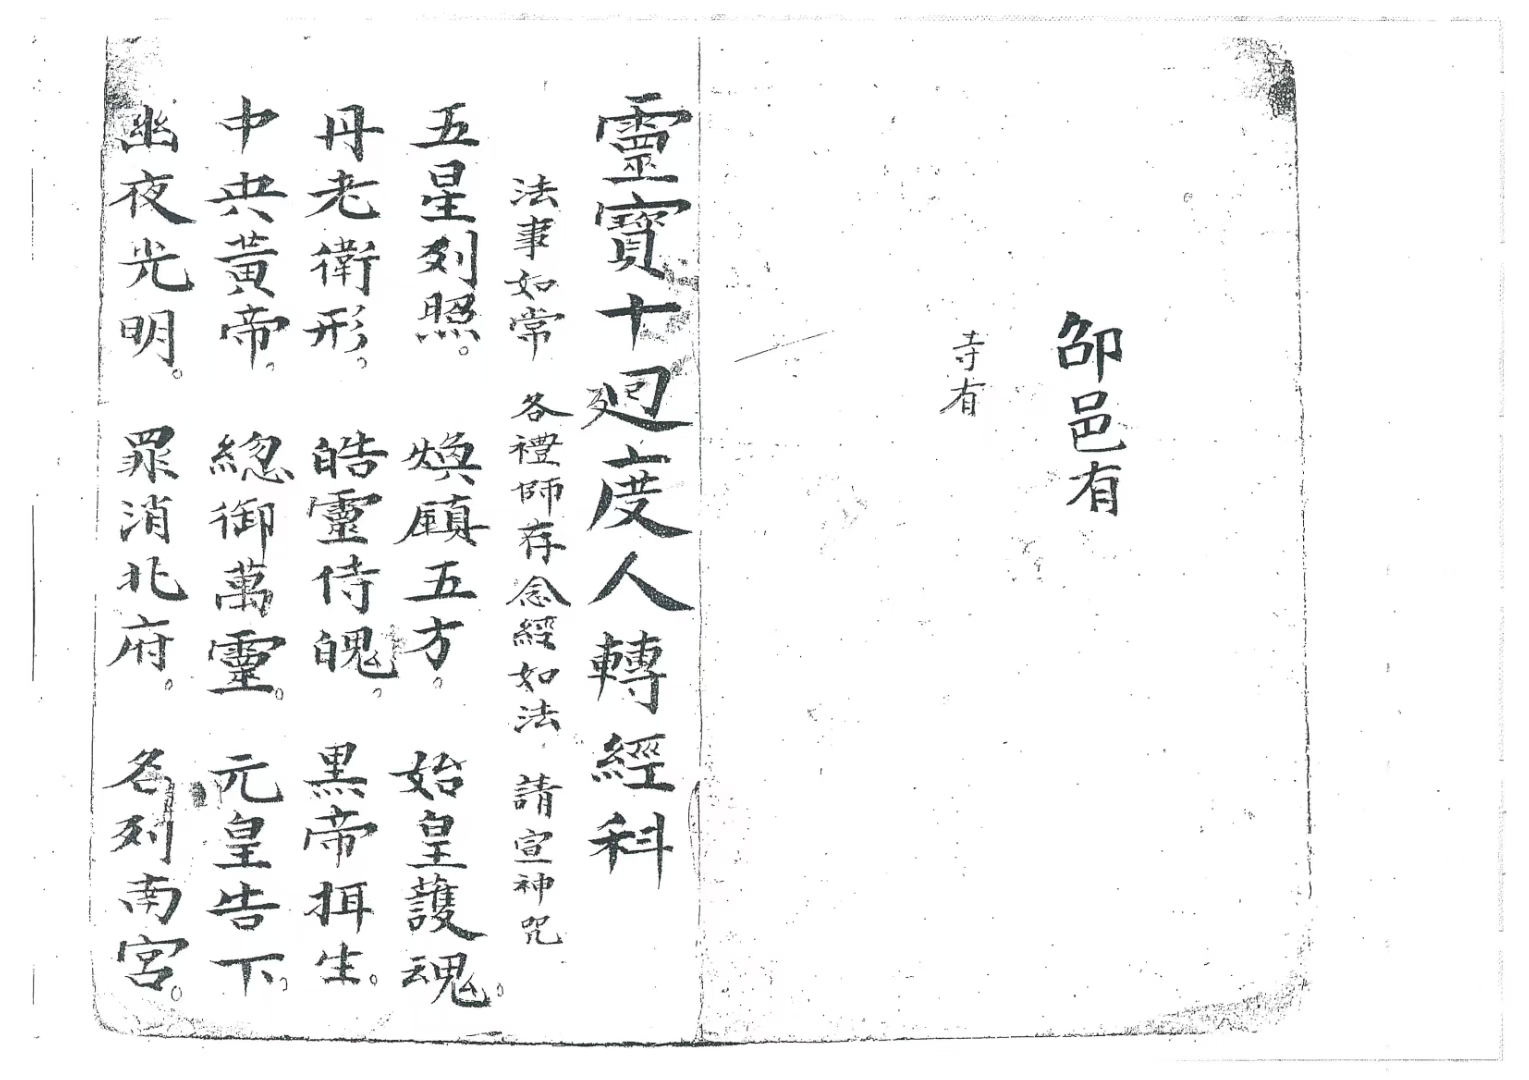 邵邑有
寺有
靈寶十廻度人轉經科
法事如常 各禮師存念經如法 請宣神咒
五星列照。 煥鎮五方。 始皇護魂。
丹老衛形。 皓靈侍魄。 黑帝抇生。
中央黃帝。 緫御萬靈。 元皇告下。
幽夜光明。 罪消北府。 名列南宮。